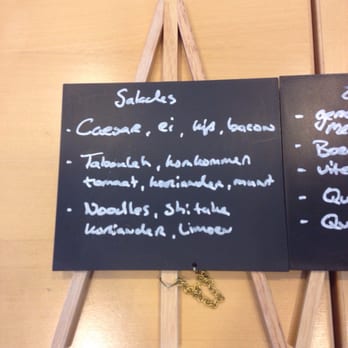 Salades
- Caesar, ei, kip, bacon
- Tabouleh, komkommer
tomaat, koriander, munt
- Noodles, shitake
koriander, limoen
- 
- 
- 
- Qu
- Qu